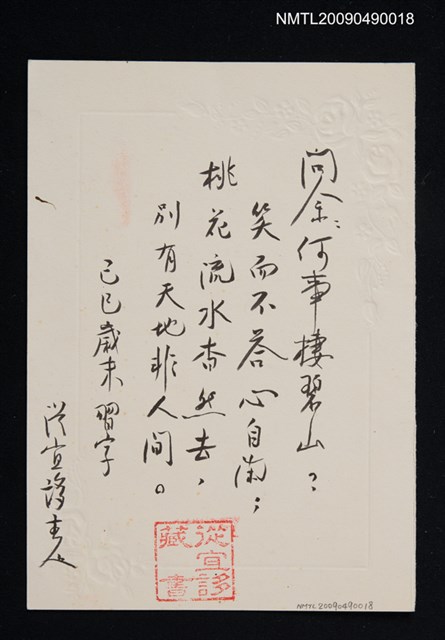 NMTL20090490018
問余：何事棲碧山？
笑而不答心自閑；
桃花流水杳然去，
別有天地非人間。
己巳歲末習字
從宣誃主人
從宣誃
藏書
NMTL20090490018